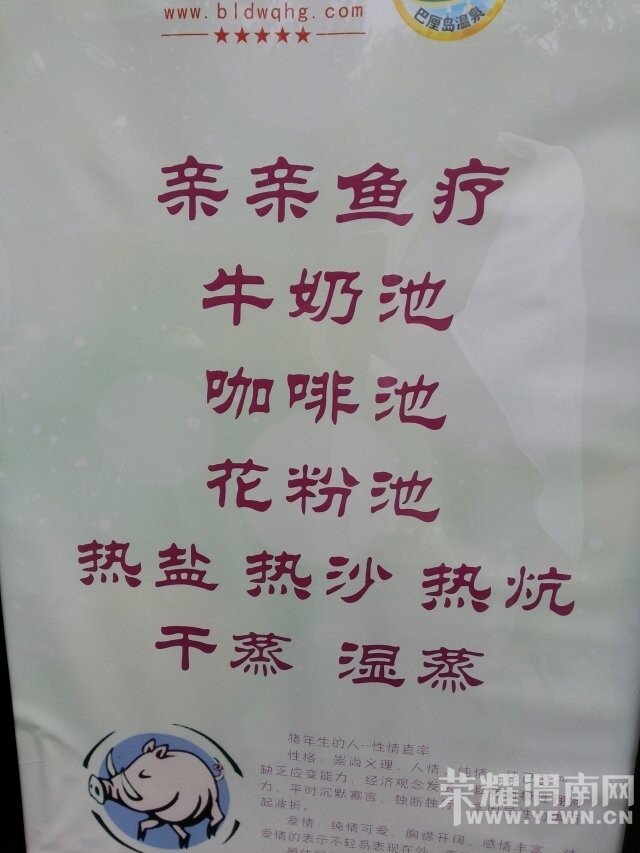 www.bldwqhg.com
巴厘岛温泉
亲亲鱼疗
牛奶池
咖啡池
花粉池
热盐 热沙 热炕
干蒸 湿蒸
猪年生的人--性情直率
性格：崇尚义理、人情、纯情
缺乏应变能力，经济观念发
力，平时沉默寡言，独断独
起波折。
爱情：纯情可爱，胸襟开阔，感情丰富
爱情的表示不轻易表现在外
荣耀渭南网
WWW.YEWN.CN